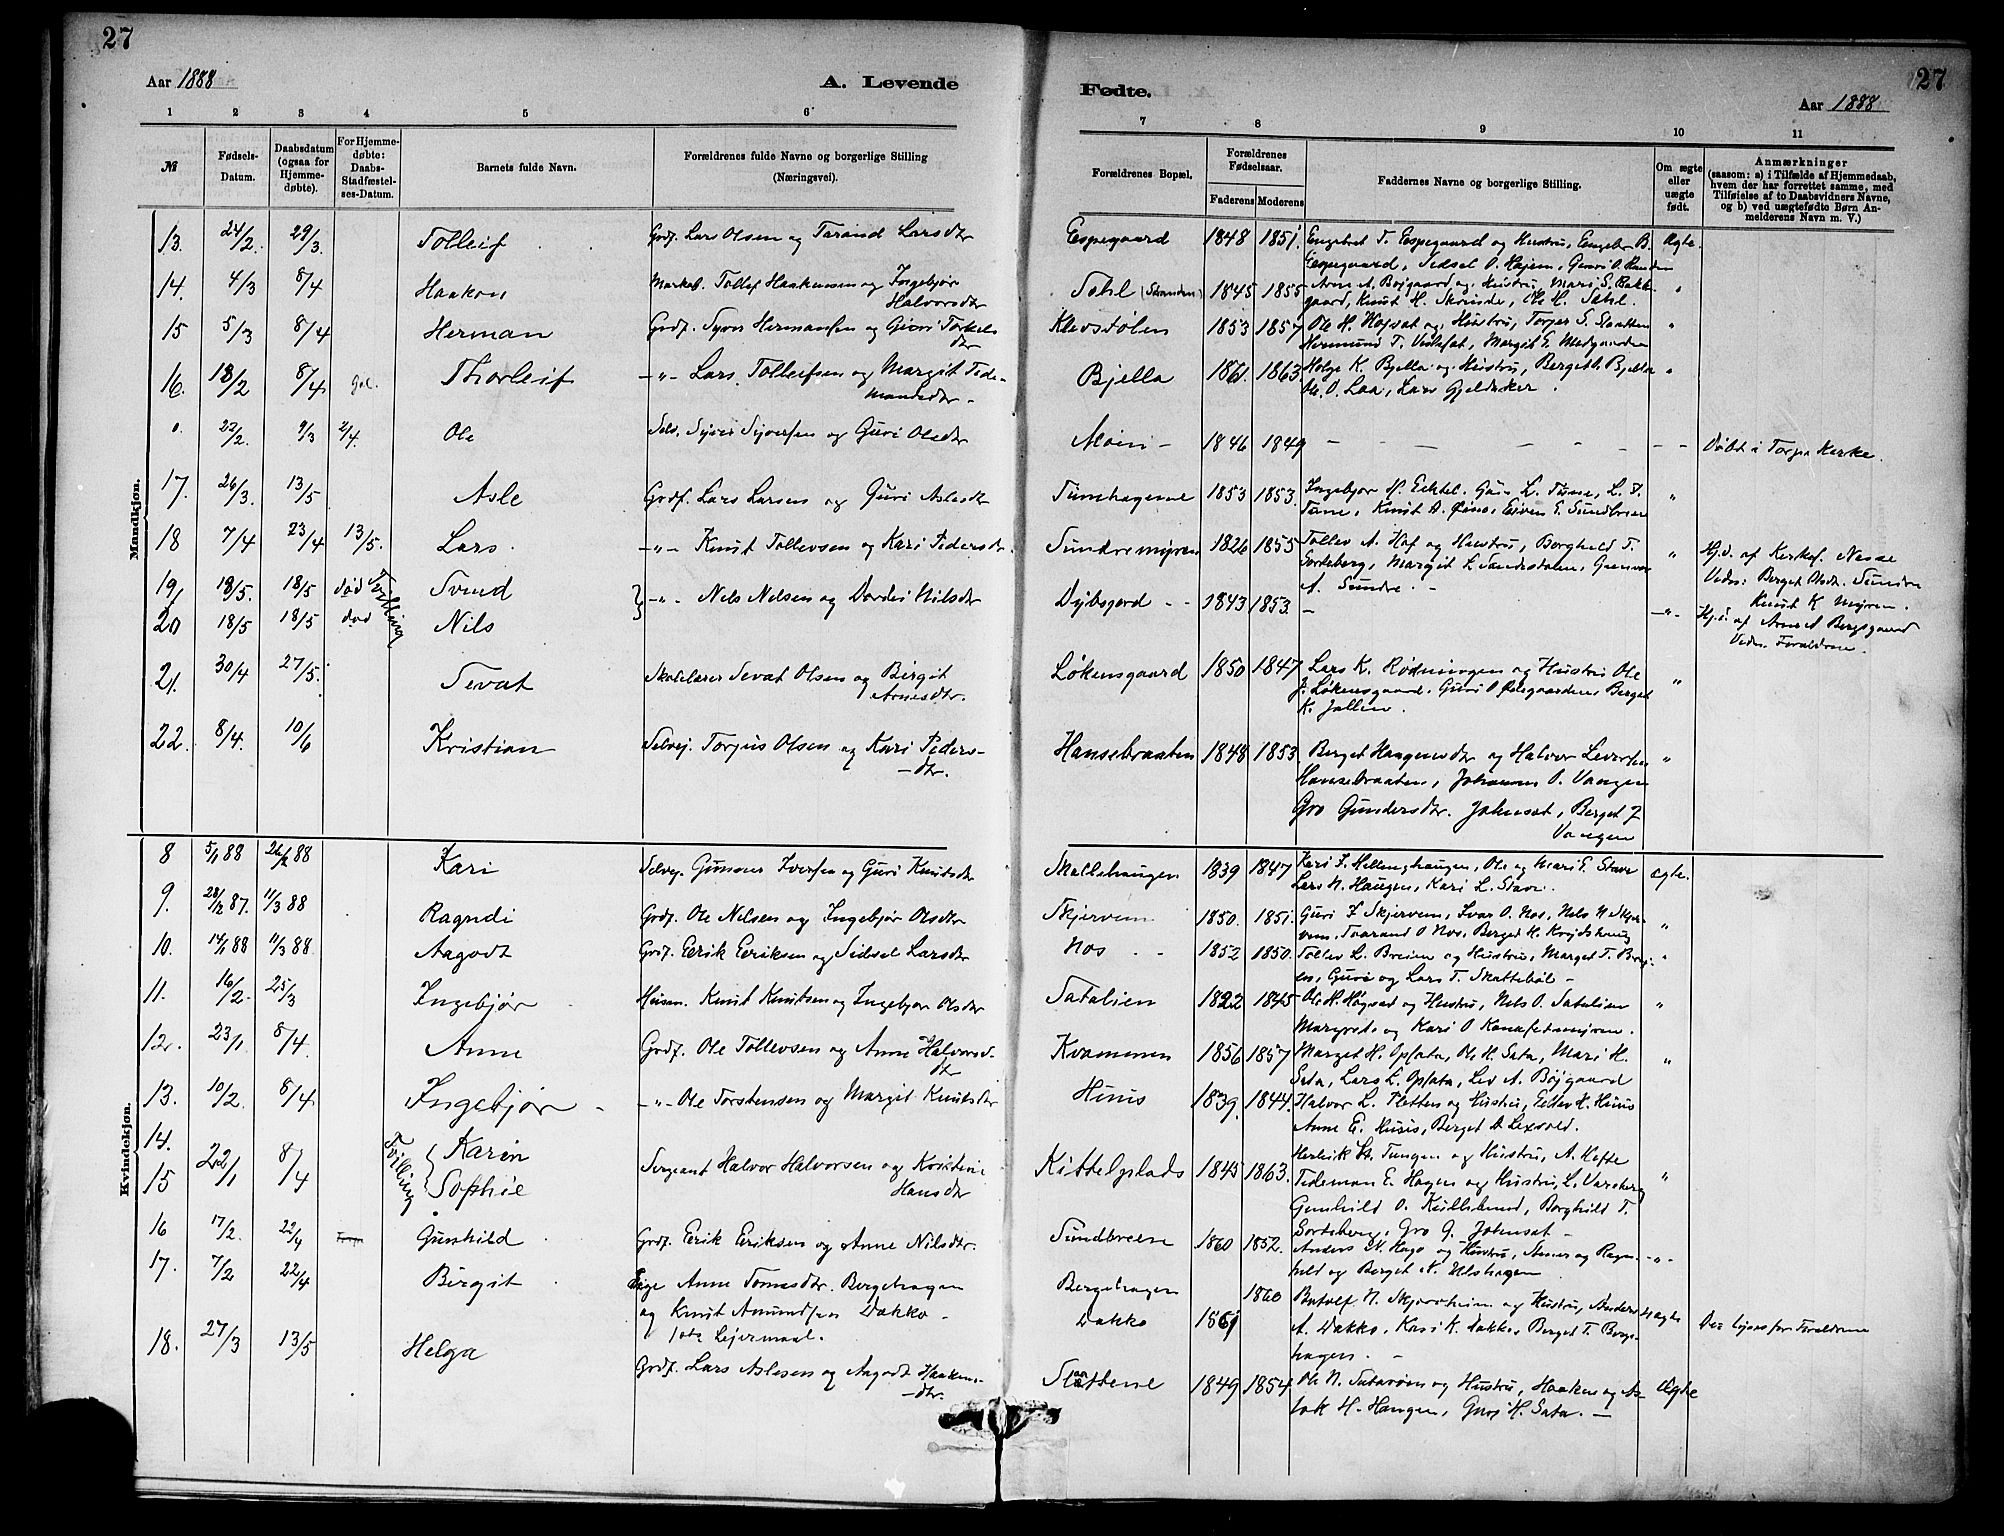 27
Aar 1888
A. Levende
Fødte.
27
Aar 1888
1 2 3 4 5 6 7 8 9 10 11
№
Fødsels-Datum.
Daabsdatum (ogsaa for Hjemmedøbte).
For Hjemmedøbte: Daabs-Stadfæstelses-Datum.
Barnets fulde Navn.
Forældrenes fulde Navne og borgerlige Stilling (Næringsvei).
Forældrenes Bopæl.
Forældrenes Fødselsaar.
Faderens Moderens
Faddernes Navne og borgerlige Stilling.
Om ægte eller uægte født.
Anmærkninger (saasom: a) i Tilfælde af Hjemmedaab, hvem der har forrettet samme, med Tilføielse af to Daabsvidners Navne, og b) ved uægtefødte Børn Anmelderens Navn m. V.)
Mandkjøn.
13. 24/2. 29/3 Tolleif Grdf. Lars Olsen og Tarand Larsdtr Espegaard 1848 1851. Engebret T. Espegaard og Hustru, Engebr. B. Ægte.
Espegaard, Sidsel O. Hajem, Guri O.
14. 4/3 8/4 Haakon Tollef Haakensen og Ingebjør Sahl (Stranden) 1845 1855 Arne A. Bøjgaard og Hustru, Mari S. Bakke- "
Halvorsdtr gaard, Knut H. Skrinde, Ole H. Sahl.
15 5/3 8/4 Herman Grdf. Syver Hermansen og Guri Torkels Klevstølen 1853 1857 Ole H. Højvat og Hustru, Torger S. Slaatten "
dtr Hermund T. Margit E.
16. 18/2 8/4 Gol. Thorleif -"- Lars Tolleifsen og Margit Tede- Bjella 1861. 1863 Helge K. Bjella og Hustru, Berget O. Bjella "
mandsdtr - Ole O. Laa, Lars Gjeldaker.
0. 22/2. 9/3 2/4. Ole Selv. Syver Syversen og Guri Olsdtr Moen - 1846 1849 - - - - - - - Døbt i Torpe Kerke.
17. 26/3. 13/5 Asle Grdf. Lars Larsen og Guri Aslesdtr Tunehagene 1853 1853. Ingebjør H. L. Tune, L. T. "
Tune, Knut A. Eiven E. Sundbreen
18 7/4 23/4 13/5. Lars. -"- Knut Tollevsen og Kari Pedersdtr. Sundremyren 1826 1855 Tollev A. Hof og Hustru, Borghild T. " Hj.d. af Kerkes. Nesse
Sorteberg, Margit L. Sandesdalen, Gunvor Vidn: Berget Olsdr. Sundre
19/ 18/5. 18/5 død Tvilling Svend } -"- Nels Nelsen og Dordei Nilsdtr Dybsjord - - 1843 1853. A. Sundre. - Knut K Myren.
20 18/5 18/5 død Nils - -"- Hj.d. af Arne A Bergsgaard
Vidn. Forældrene.
21. 30/4 27/5. Sevat Skolelærer Sevat Olsen og Birgit Løkensgaard 1850 1847 Lars K. Rødningen og Hustru Ole "
Arnesdtr. J. Løkensgaard. Guri O. Berget
K. Jallen.
22. 8/4. 10/6 Kristian Selvej. Torjus Olsen og Kari Peders- Hansebraaten 1848 1853. Berget Haagensdtr og Halvor "
-dtr. Hansebraaten, Johannes O. Vangen
Gro Gundersdtr. Johnsat, Berget J
Vangen
Kvindekjøn.
8 5/1 88 26/2 88 Kari Selvej. Gunner Iversen og Guri Knutsdtr 1839 1847 Kari J. Ole og Mari E. Stave ægte.
Lars N. Haugen, Kari L. Stave.
9. 28/12 87. 11/3 88 Ragndi Grdf. Ole Nilsen og Ingebjør Olsdtr Skjervem 1850. 1851. Guri J Skjervem, Ivar O. Nos, Nels N Skjer- "
vem, Taarand O Nos, Berget H.
10. 14/1 88 11/3 88 Aagodt Grdf. Eerik Eeriksen og Sidsel Larsdtr Nos - - 1852 1850. Tollev L. Breien og Hustru, Marget T. Brei- "
en, Guri og Lars T. Skattebøl -
11. 16/2. 25/3 Ingebjør Husm. Knut Knutsen og Ingebjør Olsdtr Satalien 1822 1845 Ole H. Høgvad og Hustru, Nels O. Satalien "
Margrete og Kari O
12. 23/1 8/4. Anne Grdf. Ole Tollevsen og Anne Halvorsd- Kvammen 1856 1857 Marget H. Opsata, Ole H. Sata, Mari H. "
tr Sata, Lars L. Opsata, Lev A. Bøjgaard
13. 10/2. 8/4 Ingebjør - -"- Ole Torstensen og Margit Knutsdtr Huus 1839. 1844. Halvor L. Pletten og Hustru, H. Huus
Anne E. Huus, Berget A. Lexvold.
14. Karen
Tvilling 22/1 8/4 Sergeant Halvor Halvorsen og Kristine Kittelsplads 1845 1863. Herleik Th. Tungen og Hustru, A. Hefte "
15 Sophie Hansdtr Tedeman E. Hagen og Hustru, L. Varaberg
Gunhild O. Kullslund, Borghild T.
16 17/2. 22/4 Torpe Gunhild Grdf. Eerik Eeriksen og Anne Nilsdtr. Sundbreen 1860 1852. Sorteberg, Gro G. Johnsat -
Anders N. Hago og Hustru, og Ragn- -"-
17. 7/2 22/4 Birgit Pige Anne Tomesdtr. Bergehagen Bergehagen 1860 hild og Berget N. Ulshagen
og Knut Amundsen Dokko - Dokko 1861 Botolf N. Skjerheim og Hustru, Anders uægte Deres for Forældrene
1ste Lejermaal. A. Dokko, Kari K. Dokko, Berget T. Berge-
hagen. -
18. 27/3 13/5 Helga Grdf. Lars Aslesen og Aagodt Haakens- Slaattene 1849 1854 Ole N. Satarøen og Hustru, Haaken og As- Ægte
-dtr. lak H. Haugen, Guri H. Sata. -